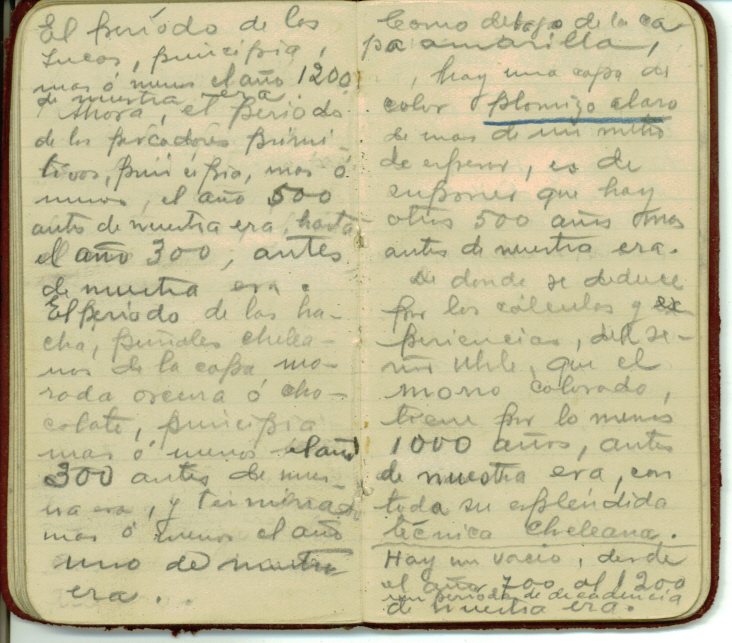 El período de los
Incas, principia,
mas ó menos el año 1200
de nuestra era.
Ahora, el período
de los pescadores primi-
tivos, principia, mas ó
menos, el año 500
antes de nuestra era, hasta
el año 300, antes
de nuestra era.
El período de las ha-
cha, puñales chelea-
nos de la capa mo-
rada oscura ó cho-
colate, principia
mas ó menos el año
300 antes de nues-
tra era, y terminado
mas ó menos el año
uno de nuestra
era.
Como debajo de la ca
pa amarilla,
, hay una capa de
color plomizo claro
de mas de un metro
de espesor, es de
suponer que hay
otros 500 años mas
antes de nuestra era.
De donde se deduce
por los cálculos y ex
periencias, del se-
ñor Uhle, que el
morro colorado,
tiene por lo menos
1000 años, antes
de nuestra era, con
toda su espléndida
técnica cheleana.
Hay un vacio, desde
el año 700 al 1200
un período de decadencia
de nuestra era.